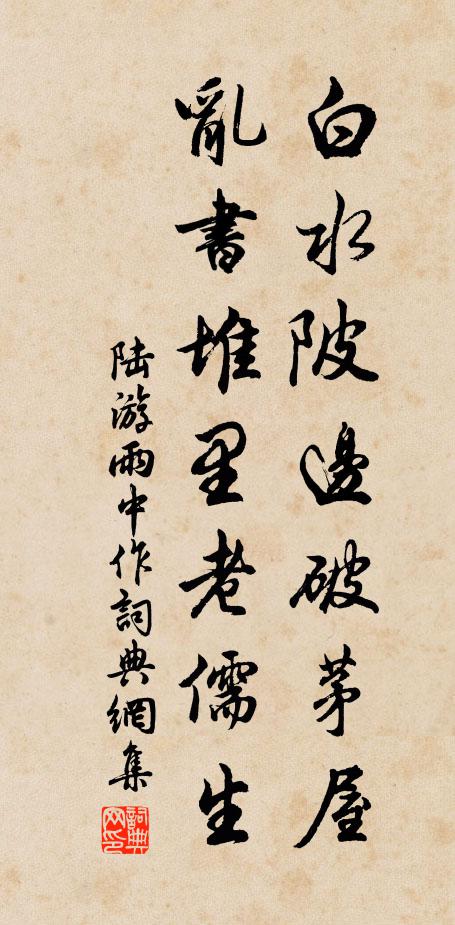 白水陂邊破茅屋
亂書堆里老儒生
陆游雨中作詞典網集
詞典網印